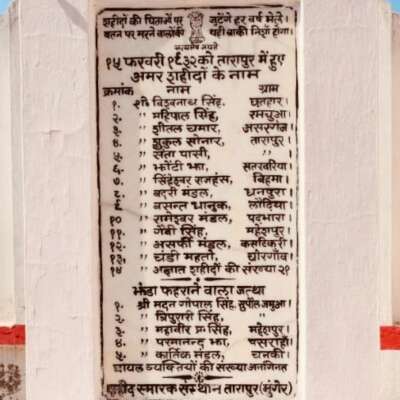 शहीदों की चिताओं पर जुटेंगे हर वर्ष मेले।
वतन पर मरने वालों की यही बाकी निशाँ होगा।
सत्यमेव जयते
१५ फरवरी १९३२ को तारापुर में हुए
अमर शहीदों के नाम
क्रमांक नाम ग्राम
१. श्री विश्वनाथ सिंह, छत्रहार।
२. " महिपाल सिंह, रामचुआ।
३. " शीतल चमार, असरगंज।
४. " सुकुल सोनार, तारापुर।
५. " संता पासी, "
६. " झोंटी झा, सतखरिया।
७. " सिंहेश्वर राजहंस, बिहमा।
८. " बदरी मंडल, धनपुरा।
९. " बसन्त धानुक, लौढ़िया।
१० " रामेश्वर मंडल, पढभारा।
११. " गैबी सिंह, महेशपुर।
१२. " अशर्फी मंडल, कसटिकरी।
१३. " चंडी महतो, चोरगाँव।
१४ " अज्ञात शहीदों की संख्या २१
झंडा फहराने वाला जत्था
१. श्री मदन गोपाल सिंह, सुपौल जमुआ।
२. " त्रिपुरारी सिंह, "
३. " महावीर प्र. सिंह, महेशपुर।
४. " परमानन्द झा, पसराहा।
५. " कार्तिक मंडल, चनकी।
घायल व्यक्तियों की संख्या अनगिनत
शहीद स्मारक संस्थान तारापुर (मुंगेर)